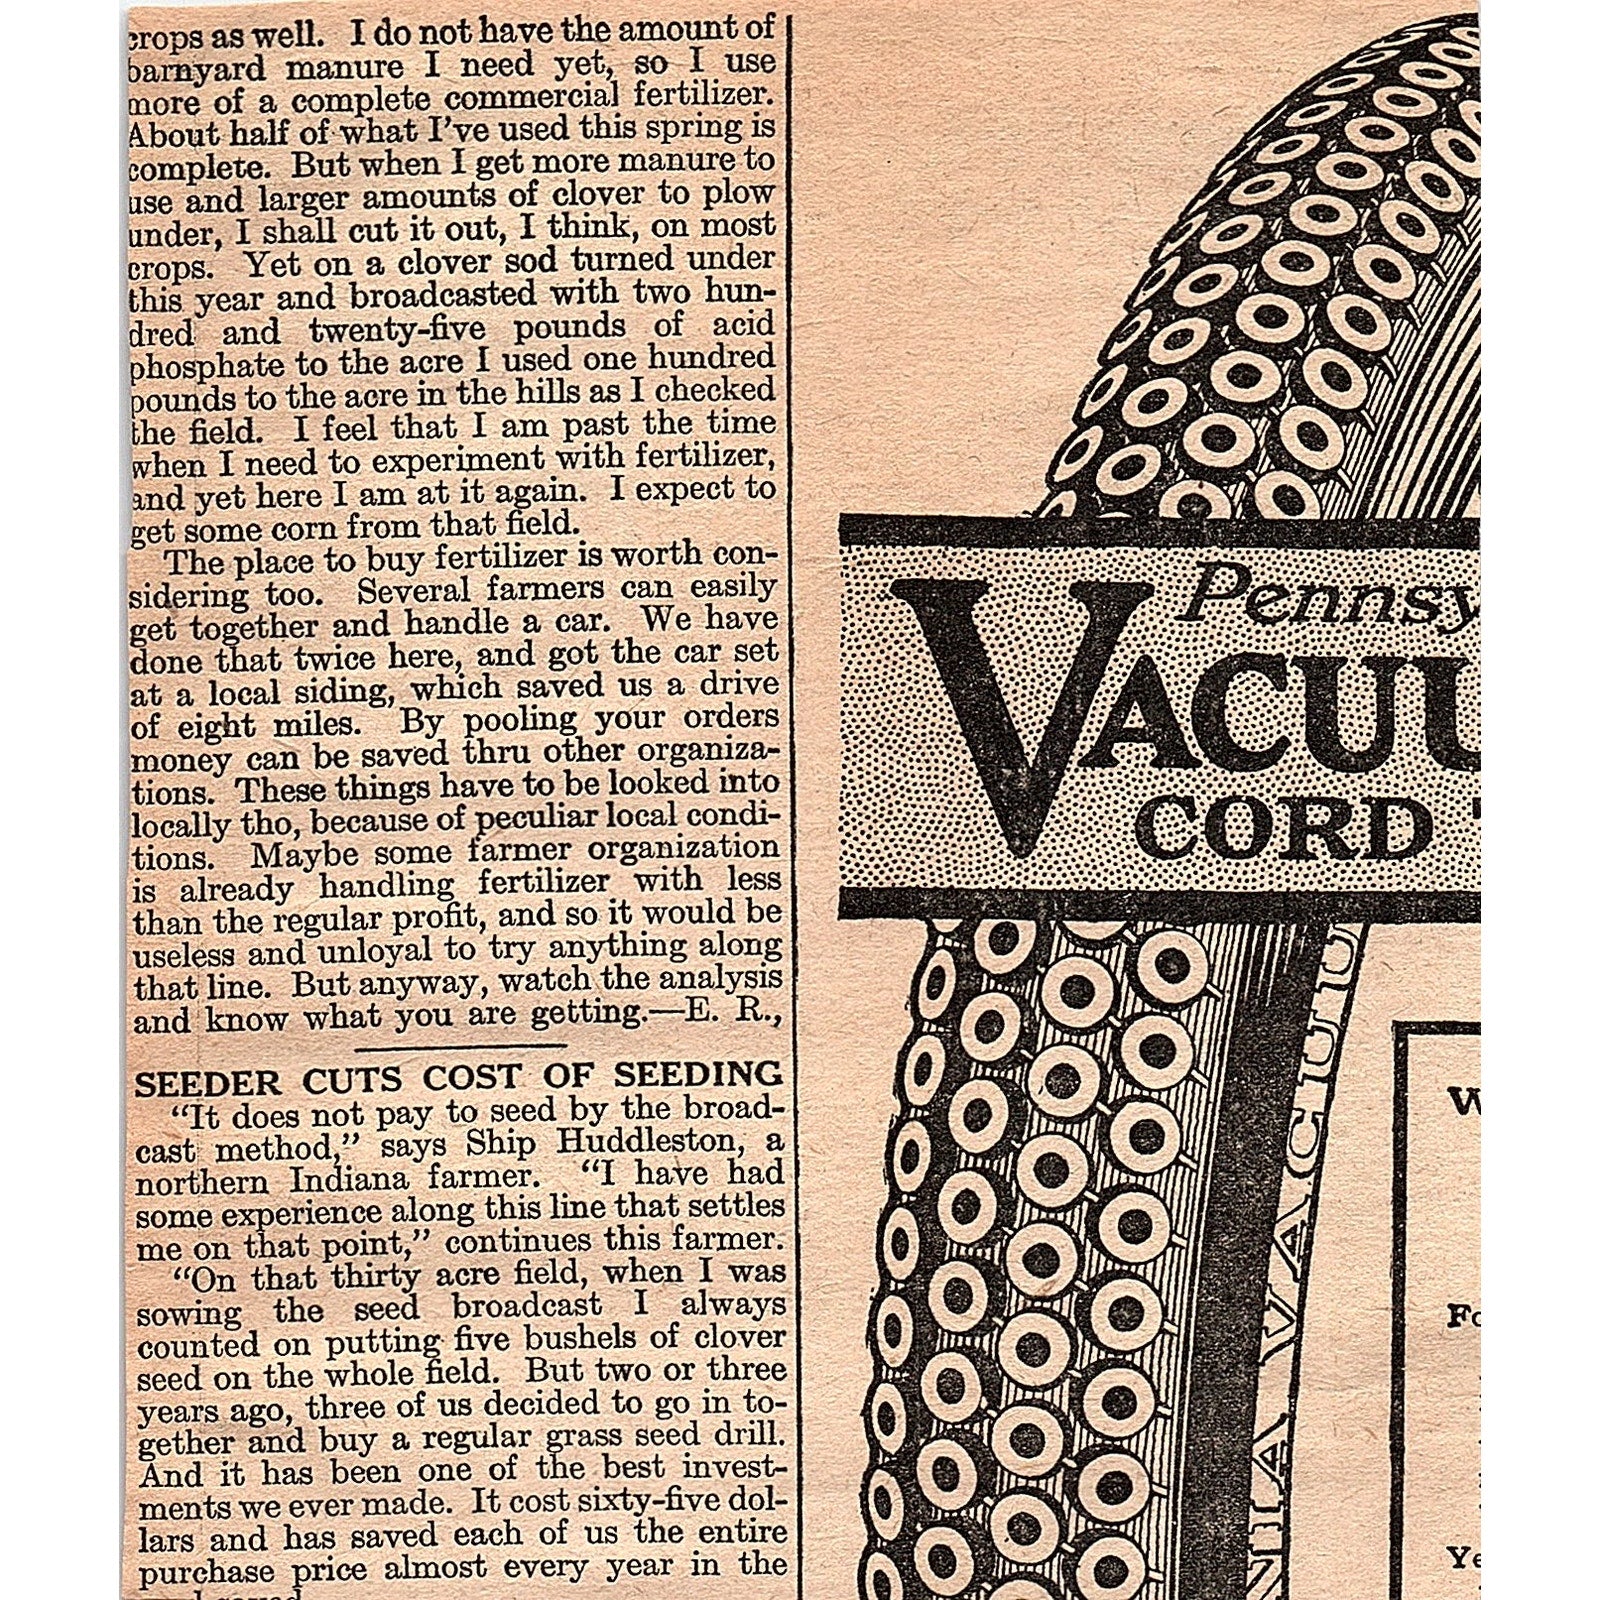 crops as well. I do not have the amount of
barnyard manure I need yet, so I use
more of a complete commercial fertilizer.
About half of what I've used this spring is
complete. But when I get more manure to
use and larger amounts of clover to plow
under, I shall cut it out, I think, on most
crops. Yet on a clover sod turned under
this year and broadcasted with two hun-
dred and twenty-five pounds of acid
phosphate to the acre I used one hundred
pounds to the acre in the hills as I checked
the field. I feel that I am past the time
when I need to experiment with fertilizer,
and yet here I am at it again. I expect to
get some corn from that field.
The place to buy fertilizer is worth con-
sidering too. Several farmers can easily
get together and handle a car. We have
done that twice here, and got the car set
at a local siding, which saved us a drive
of eight miles. By pooling your orders
money can be saved thru other organiza-
tions. These things have to be looked into
locally tho, because of peculiar local condi-
tions. Maybe some farmer organization
is already handling fertilizer with less
than the regular profit, and so it would be
useless and unloyal to try anything along
that line. But anyway, watch the analysis
and know what you are getting.—E. R.,
SEEDER CUTS COST OF SEEDING
"It does not pay to seed by the broad-
cast method," says Ship Huddleston, a
northern Indiana farmer. "I have had
some experience along this line that settles
me on that point," continues this farmer.
"On that thirty acre field, when I was
sowing the seed broadcast I always
counted on putting five bushels of clover
seed on the whole field. But two or three
years ago, three of us decided to go in to-
gether and buy a regular grass seed drill.
And it has been one of the best invest-
ments we ever made. It cost sixty-five dol-
lars and has saved each of us the entire
purchase price almost every year in the
Pennsy
VACUU
CORD
NIA VACUU
W
Fo
Ye